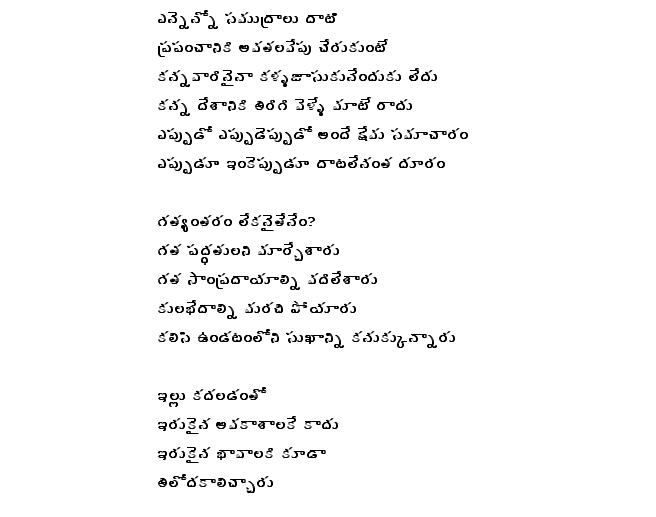 ఎన్నెన్నో సముద్రాలు దాటి
ప్రపంచానికి అవతలవేపు చేరుకుంటే
కన్నవారినైనా కళ్ళజూసుకునేందుకు లేదు
కన్న దేశానికి తిరిగి వెళ్ళే మాటే రాదు
ఎప్పుడో ఎప్పుడెప్పుడో అందే క్షేమ సమాచారం
ఎప్పుడూ ఇంకెప్పుడూ దాటలేనంత దూరం
గత్యంతరం లేకనైతేనేం?
గత పద్ధతులని మార్చేశారు
గత సాంప్రదాయాల్ని వదిలేశారు
కులభేదాల్ని మరచి పోయారు
కలిసి ఉండటంలోని సుఖాన్ని కనుక్కున్నారు
ఇల్లు కదలడంతో
ఇరుకైన అవకాశాలకే కాదు
ఇరుకైన భావాలకి కూడా
తిలోదకాలిచ్చారు